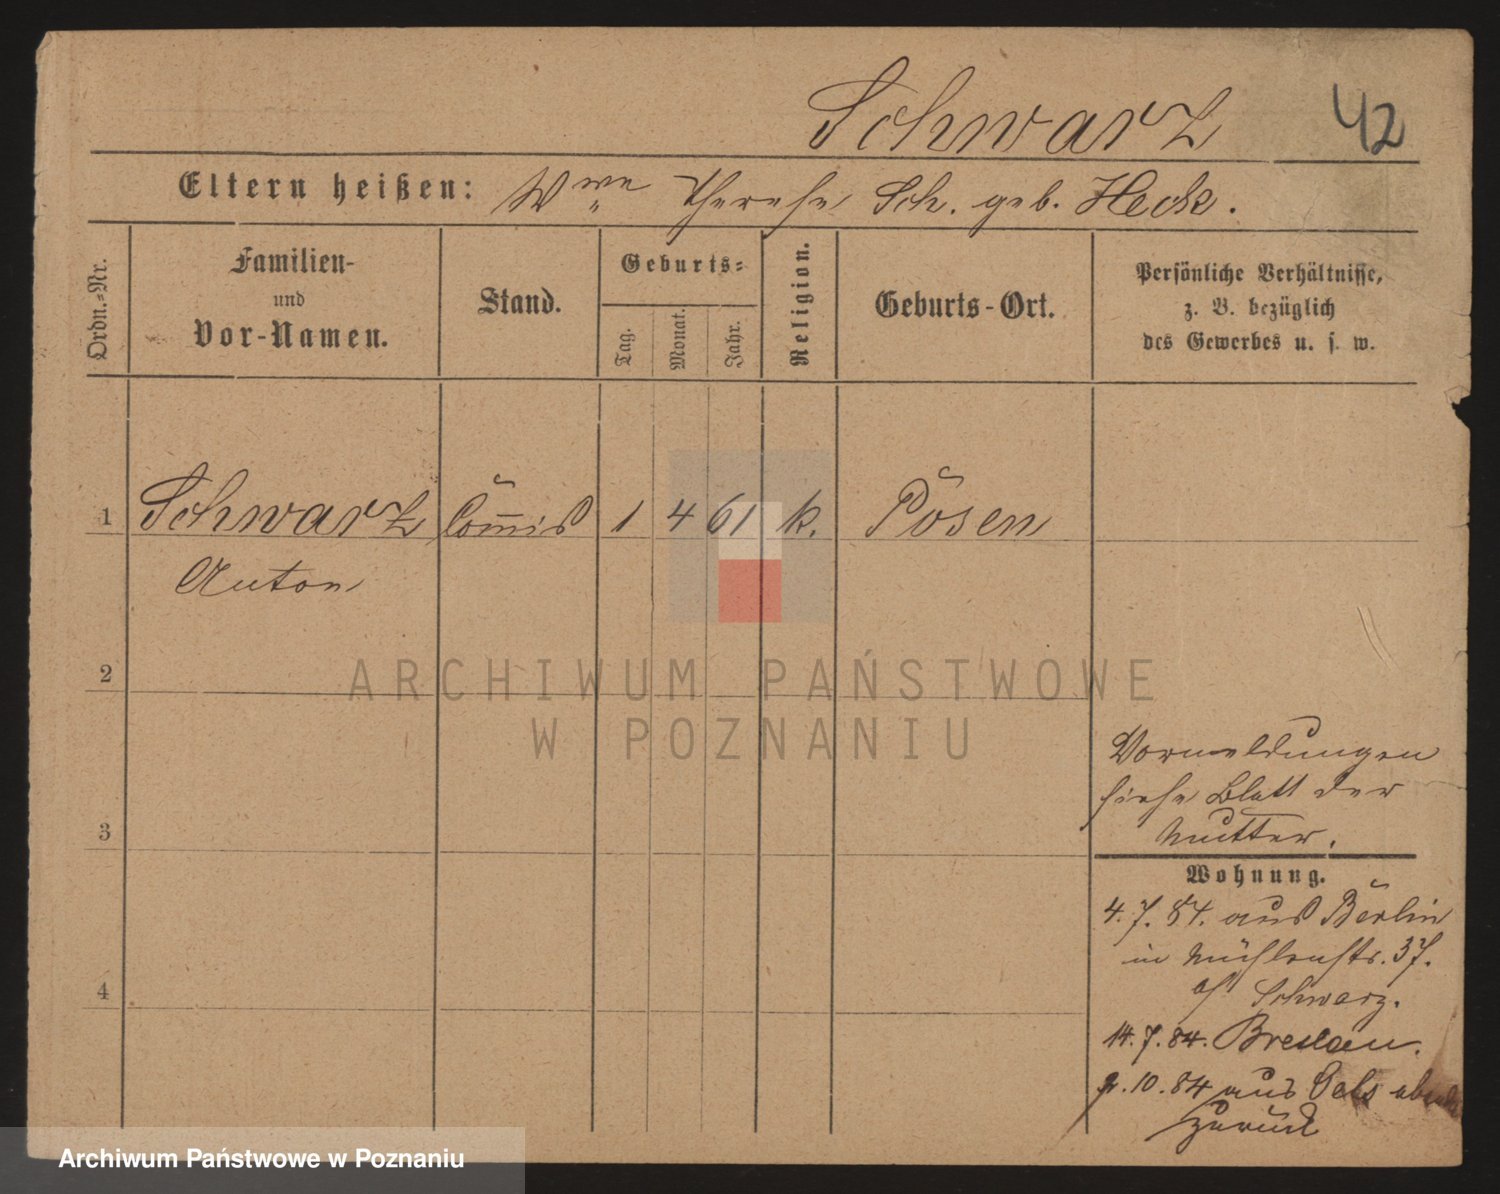 Schwarz 42
Eltern heißen: Wwe Therese Sch. geb. Heck.
Ordn.=Nr.
Familien-
und
Vor-Namen.
Stand.
Geburts=
Tag.
Monat.
Jahr.
Religion.
Geburts-Ort.
Persönliche Verhältnisse,
z. B. bezüglich
des Gewerbes u. s. w.
1 Schwarz Com̅is 1 4 61 k. Posen
Anton
2
ARCHIWUM PAŃSTWOWE
W POZNANIU
Vormeldungen
siehe Blatt der
Mutter.
3
Wohnung.
4.7.84. aus Berlin
in Mühlenstr. 37.
Schwarz.
4
14.7.84. Breslau.
.10.84 aus Oels
zurück
Archiwum Państwowe w Poznaniu